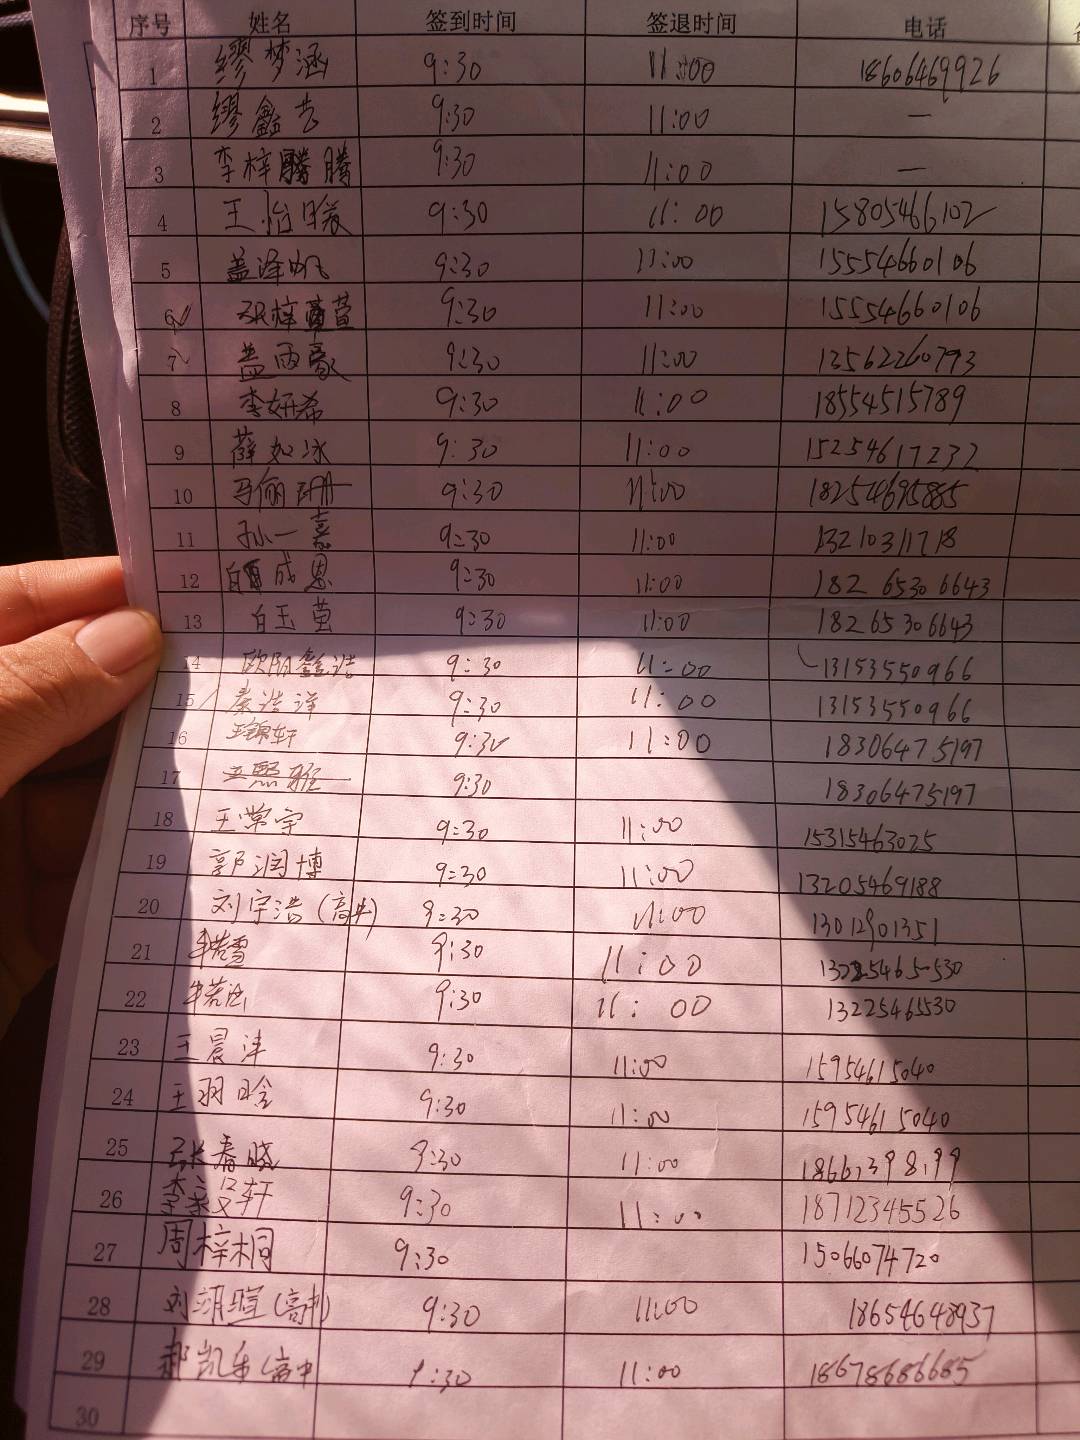 序号 姓名 签到时间 签退时间 电话
1 缪梦涵 9:30 11:00 18606469926
2 缪鑫艺 9:30 11:00 —
3 李梓腾 9:30 11:00 —
4 王怡暖 9:30 11:00 15805466102
5 盖泽帆 9:30 11:00 15554660106
6 梓萱 9:30 11:00 15554660106
7 盖雨豪 9:30 11:00 13562260793
8 李妍希 9:30 11:00 18554515789
9 薛如冰 9:30 11:00 15254617232
10 马俪珊 9:30 11:00 18254695885
11 孙一嘉 9:30 11:00 13210311718
12 白成恩 9:30 11:00 18265306643
13 白玉萤 9:30 11:00 18265306643
14 欧阳鑫浩 9:30 11:00 13153550966
15 秦浩洋 9:30 11:00 13153550966
16 王锦轩 9:30 11:00 18306475197
17 王熙雅 9:30 18306475197
18 王常宇 9:30 11:00 15315463025
19 郭润博 9:30 11:00 13205469188
20 刘宇浩(高中) 9:30 11:00 13012901351
21 牟若雪 9:30 11:00
22 牟若 9:30 11:00 13225465530
23 王晨沣 9:30 11:00 15954615040
24 王羽晗 9:30 11:00 15954615040
25 张春晓 9:30 11:00
26 李 轩 9:30 11:00 18712345526
27 周梓桐 9:30 15066074720
28 刘翊暄(高中) 9:30 11:00 18654648937
29 郝凯乐(高中 9:30 11:00 18678686685
30